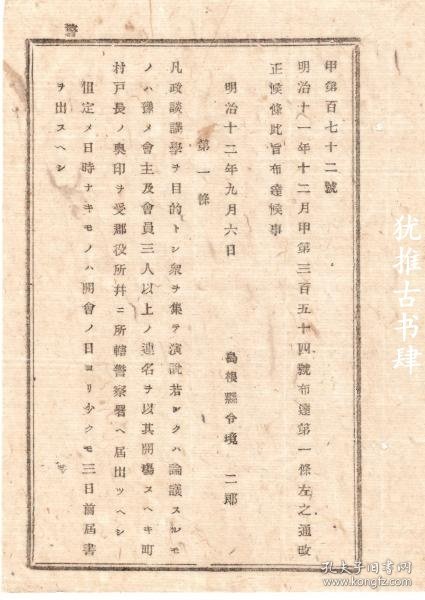 甲第百七十二號
明治十一年十二月甲第三百五十四號布達第一條左之通改
正候條此旨布達候事
明治十二年九月六日
島根縣令境 二郎
第一條
凡政談講學ヲ目的トシ衆ヲ集テ演說若シクハ論議スルモ
ノハ豫メ會主及會員三人以上ノ連名ヲ以其開場スヘキ町
村戶長ノ奧印ヲ受郡役所幷ニ所轄警察署ヘ屆出ツヘシ
但定メ日時ナキモノハ開會ノ日ヨリ少クモ三日前屆書
ヲ出スヘシ
警
犹推古书肆
孔夫子旧书网
www.kongfz.com